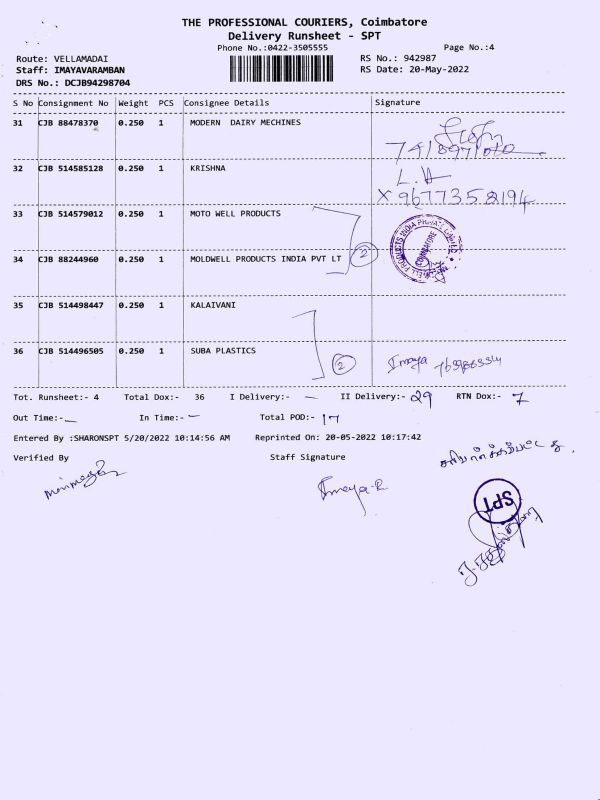 THE PROFESSIONAL COURIERS, Coimbatore
Delivery Runsheet - SPT
Phone No.:0422-3505555 Page No.:4
Route: VELLAMADAI RS No.: 942987
Staff: IMAYAVARAMBAN RS Date: 20-May-2022
DRS No.: DCJB94298704
S No Consignment No Weight PCS Consignee Details Signature
31 CJB 88478370 0.250 1 MODERN DAIRY MECHINES
32 CJB 514585128 0.250 1 KRISHNA
X 9677358194
33 CJB 514579012 0.250 1 MOTO WELL PRODUCTS
2
34 CJB 88244960 0.250 1 MOLDWELL PRODUCTS INDIA PVT LT
35 CJB 514498447 0.250 1 KALAIVANI
36 CJB 514496505 0.250 1 SUBA PLASTICS
2 Imaya
Tot. Runsheet:- 4 Total Dox:- 36 I Delivery:- — II Delivery:- 29 RTN Dox:- 7
Out Time:- — In Time:- — Total POD:- 17
Entered By :SHARONSPT 5/20/2022 10:14:56 AM Reprinted On: 20-05-2022 10:17:42
Verified By Staff Signature
Imaya-R
SPT